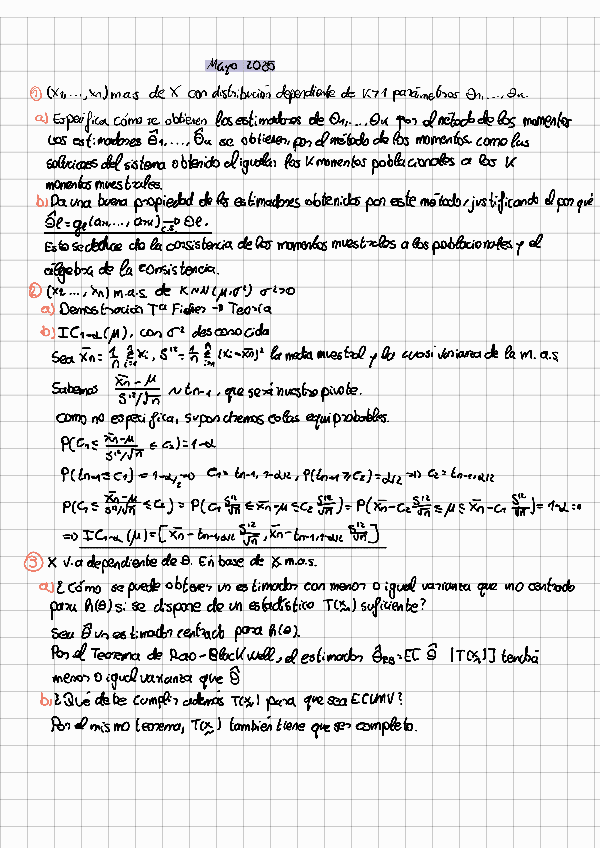 Mayo 2025
① (X₁,..., Xn) m.a.s de X con distribución dependiente de K>1 parámetros θ₁,..., θk.
a) Especifica cómo se obtienen los estimadores de θ₁,..., θk por el método de los momentos
Los estimadores θ̂₁,..., θ̂k se obtienen, por el método de los momentos, como las
soluciones del sistema obtenido al igualar los K momentos poblacionales a los K
momentos muestrales.
b) Da una buena propiedad de los estimadores obtenidos por este método, justificando el por qué
θ̂ℓ = gℓ(am₁,..., amk) → c.s θℓ.
Esto se deduce de la consistencia de los momentos muestrales a los poblacionales y el
álgebra de la consistencia.
② (X₁..., Xn) m.a.s. de X~N(μ,σ²) σ²>0
a) Demostración Tª Fisher → Teoría
b) IC₁₋α(μ), con σ² desconocida
Sea X̄n = 1/n Σ Xi, S'² = 1/n Σ (Xi-X̄n)² la media muestral y la cuasivarianza de la m.a.s
Sabemos (X̄n-μ)/(S'²/√n) ~ tn-1, que será nuestro pivote.
Como no especifica, supondremos colas equiprobables.
P(C₁ ≤ (X̄n-μ)/(S'²/√n) ≤ C₂) = 1-α
P(tn-1 ≤ C₁) = 1-α/2 → C₁ = tn-1, 1-α/2, P(tn-1 ≥ C₂) = α/2 → C₂ = tn-1, α/2
P(C₁ ≤ (X̄n-μ)/(S'²/√n) ≤ C₂) = P(C₁ S'²/√n ≤ X̄n-μ ≤ C₂ S'²/√n) = P(X̄n-C₂ S'²/√n ≤ μ ≤ X̄n-C₁ S'²/√n) = 1-α ⇒
⇒ IC₁₋α(μ) = [X̄n-tn-1, α/2 S'²/√n, X̄n-tn-1, 1-α/2 S'²/√n]
③ X v.a dependiente de θ. En base de X m.a.s.
a) ¿Cómo se puede obtener un estimador con menor o igual varianza que uno centrado
para h(θ) si se dispone de un estadístico T(X) suficiente?
Sea θ̂ un estimador centrado para h(θ).
Por el Teorema de Rao-Blackwell, el estimador θ̂RB = E[ θ̂ |T(X)] tendrá
menor o igual varianza que θ̂
b) ¿Qué debe cumplir además T(X) para que sea ECUMV?
Por el mismo teorema, T(X) también tiene que ser completo.